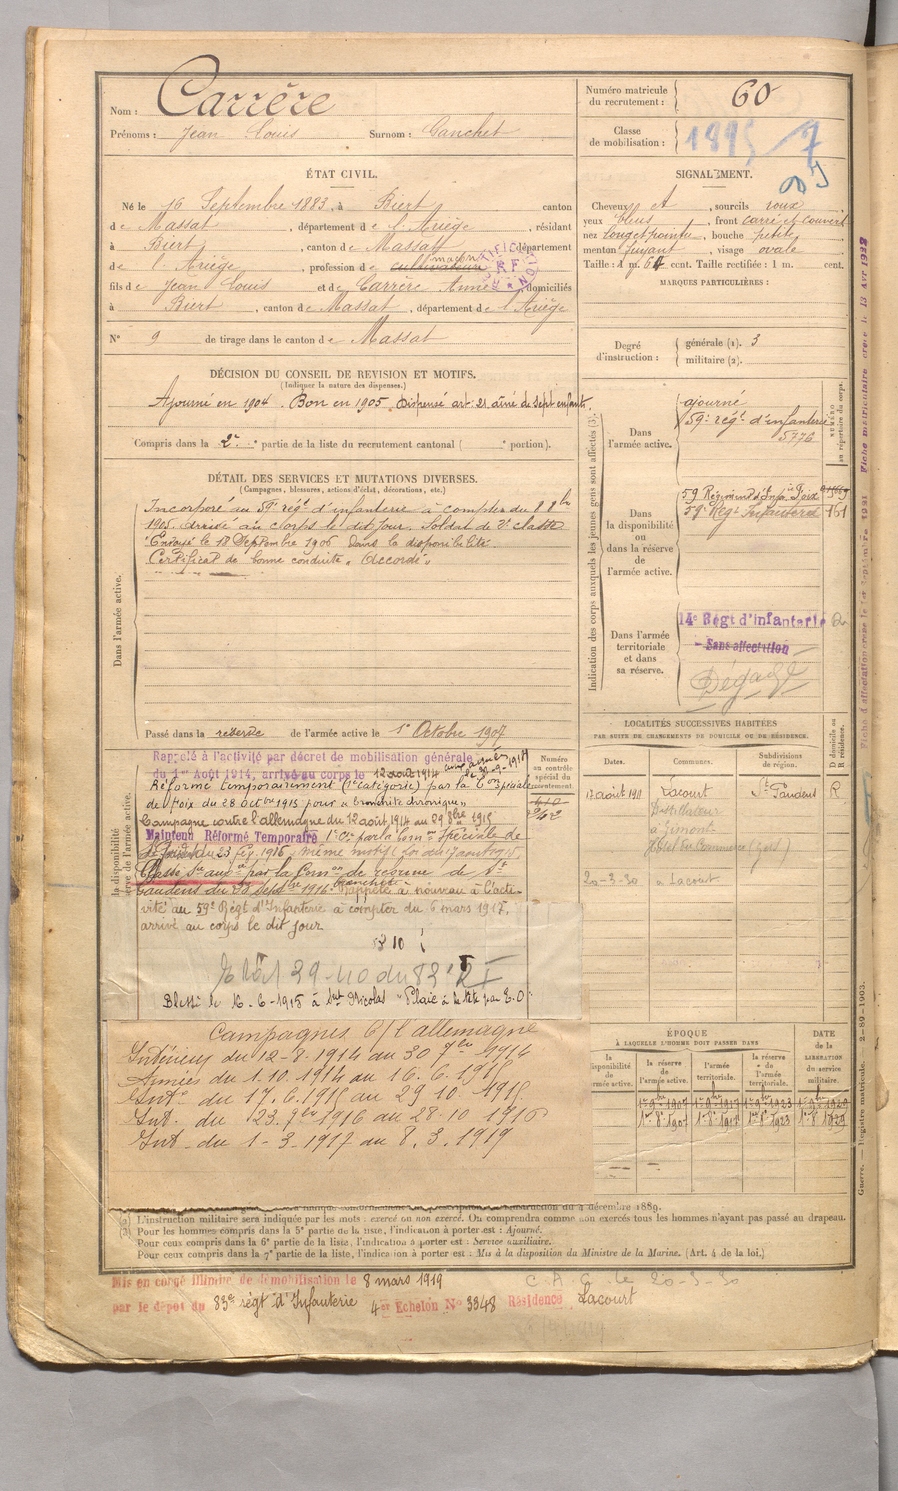 Nom : Carrère
Prénoms : Jean Louis Surnom : Canchet
Numéro matricule du recrutement : 60
Classe de mobilisation :
ÉTAT CIVIL.
Né le 16 Septembre 1883, à Biert canton
de Massat, département de l'Ariège, résidant
à Biert, canton de Massat, département
de l'Ariège, profession de cultivateur maçon
fils de Jean Louis et de Carrère Anne domiciliés
à Biert, canton de Massat, département de l'Ariège
N° 9 de tirage dans le canton de Massat
SIGNALEMENT.
Cheveux et, sourcils roux
yeux bleus, front carré et couvert
nez long et pointu, bouche petite
menton fuyant, visage ovale
Taille : 1 m. 64 cent. Taille rectifiée : 1 m. cent.
MARQUES PARTICULIÈRES :
Degré d'instruction : générale (1). 3
militaire (2).
DÉCISION DU CONSEIL DE REVISION ET MOTIFS.
(Indiquer la nature des dispenses.)
Ajourné en 1904. Bon en 1905. Dispensé art: 21. aîné de sept enfants.
Compris dans la 2e partie de la liste du recrutement cantonal ( portion).
DÉTAIL DES SERVICES ET MUTATIONS DIVERSES.
(Campagnes, blessures, actions d'éclat, décorations, etc.)
Dans l'armée active.
Incorporé au 59e régt d'infanterie à compter du 8 8bre
1905. Arrivé au Corps le dit jour. Soldat de 2e classe
Envoyé le 18 Septembre 1906 dans la disponibilité.
Certificat de bonne conduite "Accordé"
Passé dans la réserve de l'armée active le 1er Octobre 1907
Indication des corps auxquels les jeunes gens sont affectés (3).
NUMÉRO au répertoire du corps.
Dans l'armée active.
ajourné
59e régt d'infanterie
5776
Dans la disponibilité ou dans la réserve de l'armée active.
59 Régiment d'Infie à Foix
59e Régt Infanterie 161
Dans l'armée territoriale et dans sa réserve.
14e Régt d'infanterie
Sans affectation
Dégagé
LOCALITÉS SUCCESSIVES HABITÉES
PAR SUITE DE CHANGEMENTS DE DOMICILE OU DE RÉSIDENCE.
Dates. Communes. Subdivisions de région. D domicile ou R résidence.
17 août 1911 Lacourt St Gaudens R
à Gimont
Hôtel du Commerce (Gers)
20-3-30 à Lacourt
Rappelé à l'activité par décret de mobilisation générale
du 1er Août 1914, arrivé au corps le 12 août 1914
Réformé temporairement (1e catégorie) par la Con spéciale
de Foix du 28 octbre 1915 pour "bronchite chronique"
Campagne contre l'allemagne du 12 août 1914 au 29 8bre 1915
Maintenu Réformé Temporaire 1e Cie par la Comon Spéciale de
Classé Sce auxre par la Comon de réforme de St
Gaudens du 20 septbre 1916. Rappelé à nouveau à l'acti-
vité au 59e Régt d'Infanterie à compter du 6 mars 1917,
arrivé au corps le dit jour
Blessé le 16-6-1915 à St Nicolas "Plaie à la tête par E.O"
Campagnes C/ l'allemagne
Intérieur du 12-8-1914 au 30 7bre 1914
Armées du 1-10-1914 au 16.6.1915
Intr du 17.6.1915 au 29 10 1915
Int. du 23.9bre 1916 au 28-10 1916
Int. du 1-3-1917 au 8.3.1919
Numéro au contrôle spécial du recrutement.
ÉPOQUE
À LAQUELLE L'HOMME DOIT PASSER DANS
la disponibilité de l'armée active. la réserve de l'armée active. l'armée territoriale. la réserve de l'armée territoriale. DATE de la LIBÉRATION du service militaire.
(2) L'instruction militaire sera indiquée par les mots : exercé ou non exercé. On comprendra comme non exercés tous les hommes n'ayant pas passé au drapeau.
(3) Pour les hommes compris dans la 5e partie de la liste, l'indication à porter est : Ajourné.
Pour ceux compris dans la 6e partie de la liste, l'indication à porter est : Service auxiliaire.
Pour ceux compris dans la 7e partie de la liste, l'indication à porter est : Mis à la disposition du Ministre de la Marine. (Art. 4 de la loi.)
Guerre. — Registre matricule. 2-89-1903.
Mis en congé illimité de démobilisation le 8 mars 1919
par le dépôt du 83e régt d'Infanterie 4er Echelon No 3348 Résidence Lacourt
C.A.C. le 20-3-30